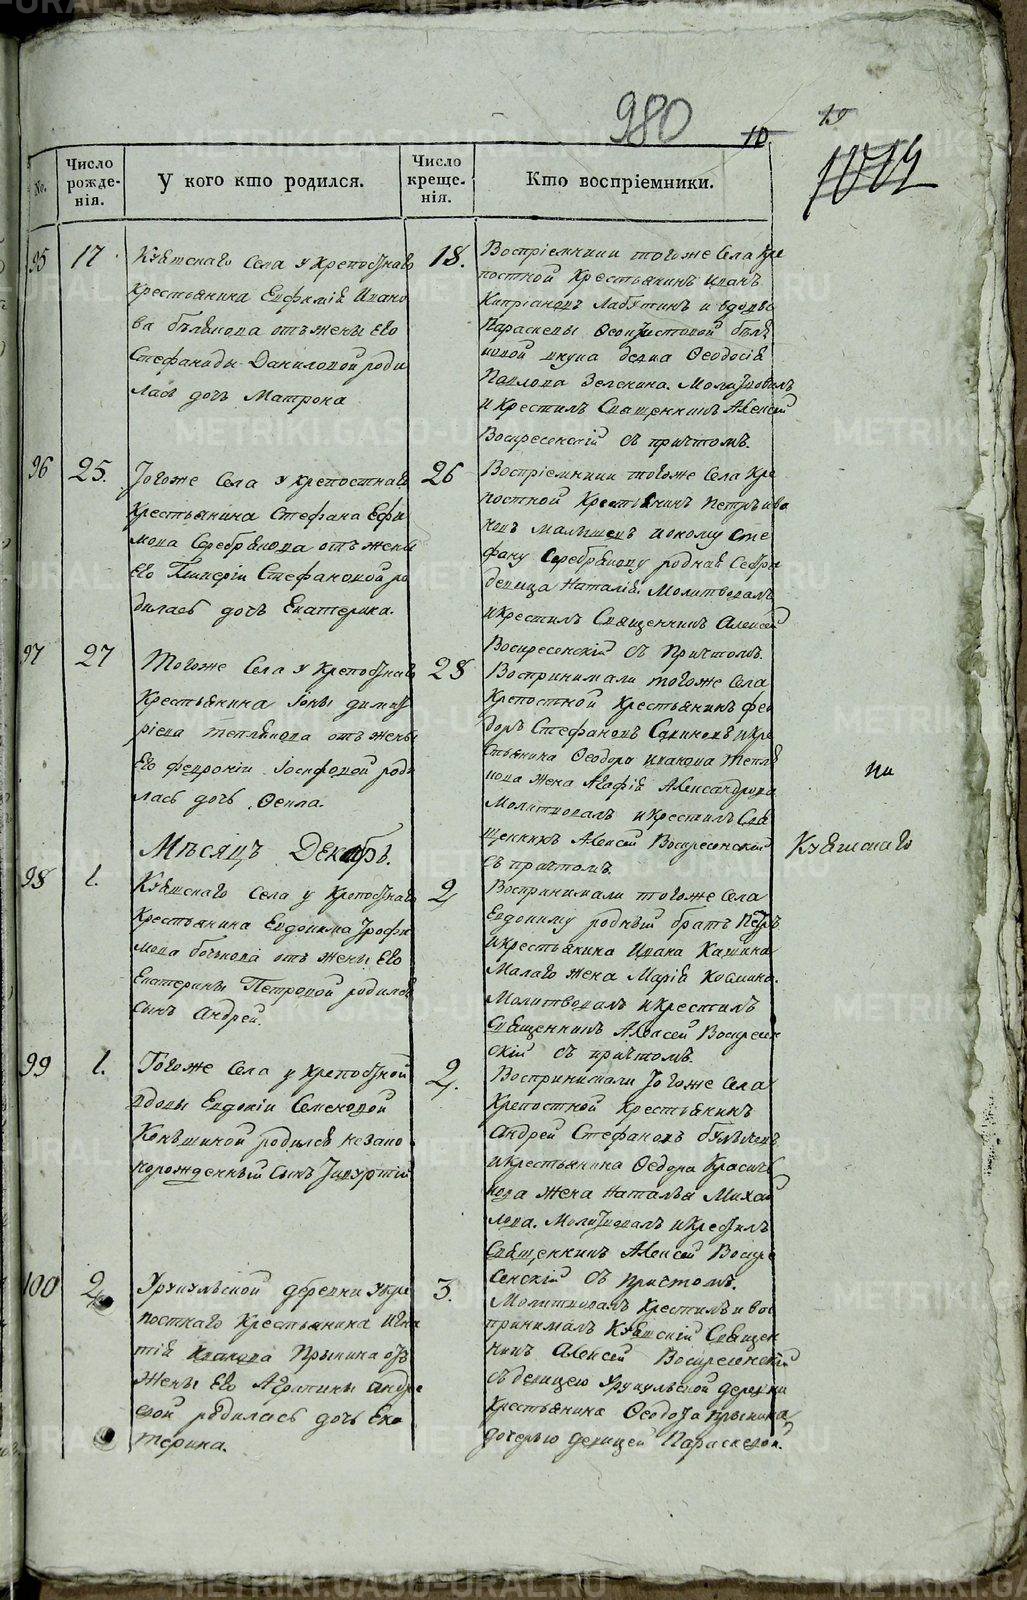 980
10
19
1014
№.
Число рожде-нія.
У кого кто родился.
Число креще-нія.
Кто воспріемники.
95
17
Куяшскаго Села у крепостнаго
крестьянина Евфимія Ивано
ва Беляиова отъ жены Его
Стефаниды Даниловой роди
лась дочь Матрона
18.
Воспріемники тогоже Села кре
постной Крестьянинъ Иванъ
Кипріановъ Лабутинъ и вдовы
Параскевы Феоктистовой
внука девка Феодосія
Павлова Зеленина. Молитвовалъ
и Крестилъ Священникъ Алексей
Воскресенскій съ причтомъ.
96
25.
Тогоже Села у крепостнаго
Крестьянина Стефана Ефи
мова Серебрякова отъ жены
Его Гликеріи Стефановой ро
дилась дочь Екатерина.
26
Воспріемники тогоже Села Кре
постной Крестьянинъ Петръ Ива
новъ Малышевъ и оному Сте
фану Серебрякову родная Сестра
девица Наталія. Молитвовалъ
и крестилъ Священникъ Алексей
Воскресенскій съ Причтомъ.
97
27
Тогоже Села у Крепостнаго
Крестьянина Іоны Димит
ріева Теплякова отъ жены
Его Февроніи Іосифовой роди
лась дочь Фекла.
28
Воспринимали тогоже Села
Крепостной Крестьянинъ Фео
доръ Стефановъ и кре
стьянина Феодора Иванова Тепля
кова жена Агафія Александрова
Молитвовалъ и Крестилъ Свя
щенникъ Алексей Воскресенскій
съ причтомъ.
Мѣсяцъ Декабрь.
98
1.
Куяшскаго Села у Крепостнаго
Крестьянина Евдокима Трофи
мова отъ жены Его
Екатерины Петровой родился
сынъ Андрей.
2
Воспринимали тогоже Села
Евдокиму родный братъ Петръ
и крестьянина Ивана Кашина
Малаго жена Марія Козмина.
Молитвовалъ и Крестилъ
Священникъ Алексей Воскресен
скій съ причтомъ.
99
1.
Тогоже Села у крепостной
вдовы Евдокіи Семеновой
родился незако
норожденный сынъ
2.
Воспринимали Тогоже Села
Крепостной Крестьянинъ
Андрей Стефановъ
и крестьянина Феодора Красиль
кова жена Наталья Михай
лова. Молитвовалъ и Крестилъ
Священникъ Алексей Воскре
сенскій съ причтомъ.
100
2
Урукульской деревни у кре
постнаго Крестьянина Игна
тія Прынина отъ
Жены Его Агрипины Андре
евой родилась дочь Ека
терина.
3.
Молитвовалъ крестилъ и вос
принималъ Куяшскій Священ
никъ Алексей Воскресенскій
съ девицею Урукульской деревни
Крестьянина Феодота Прынина
дочерью девицей Параскевой.
Куяшскаго